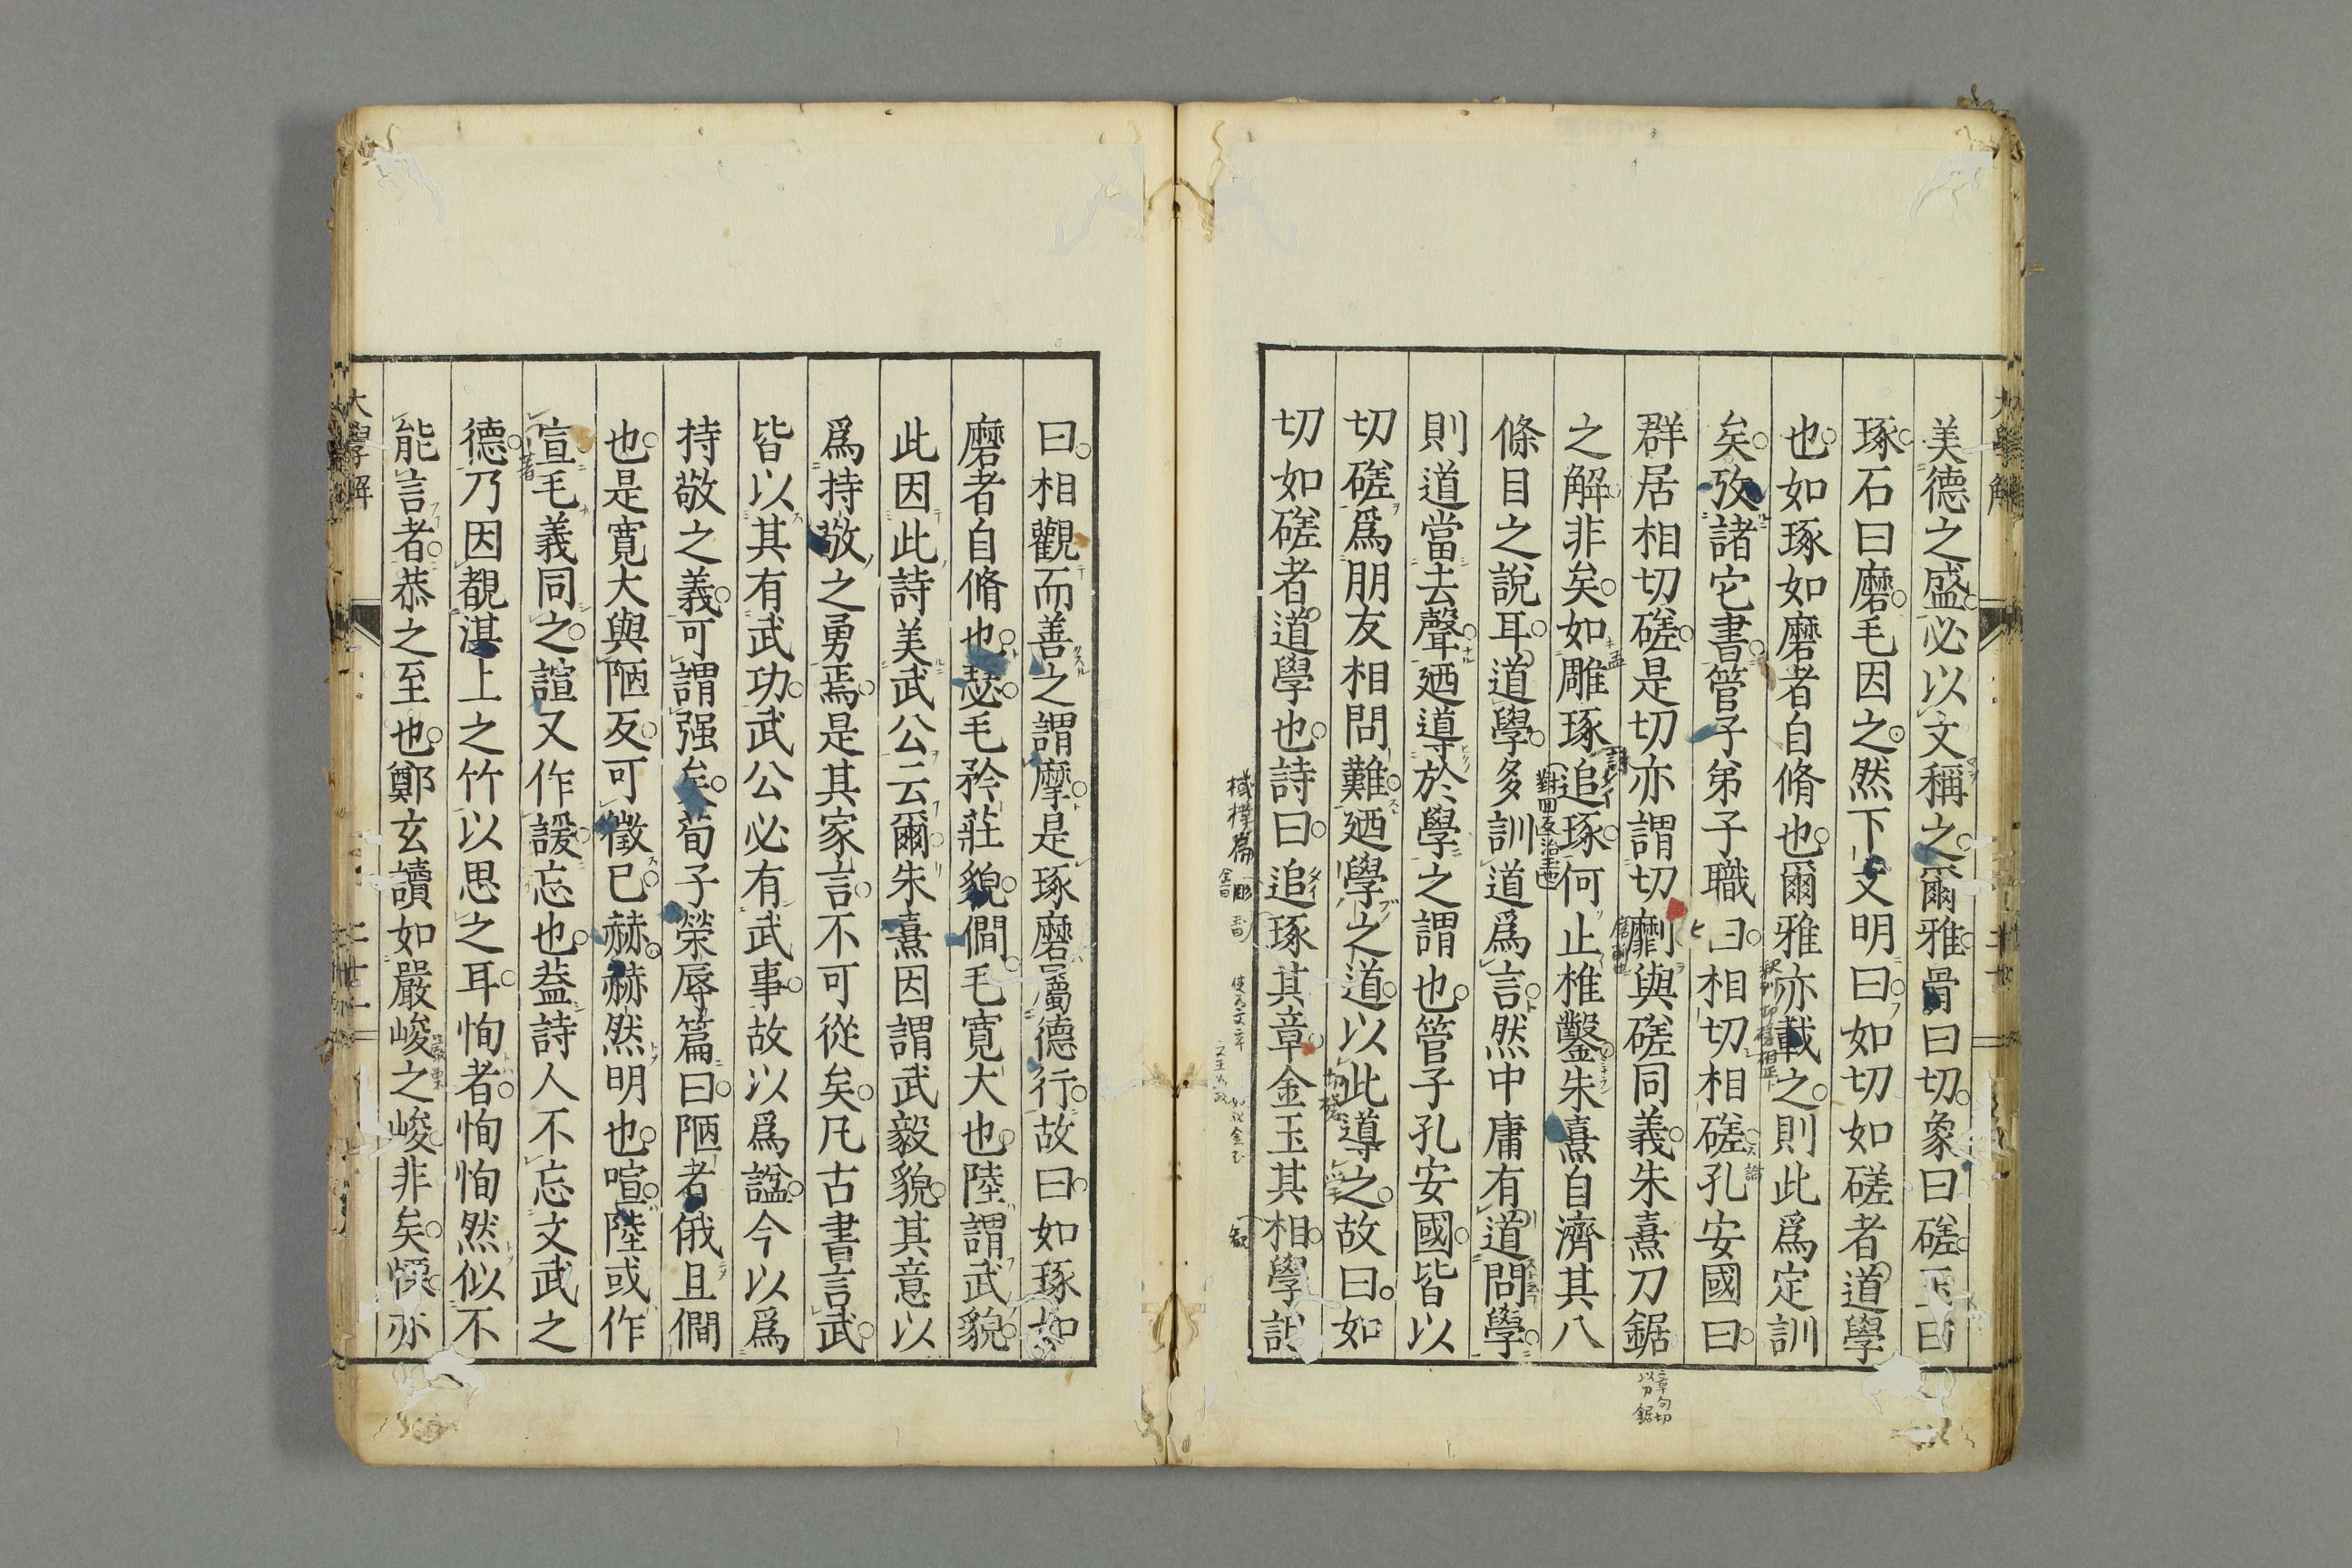 美德之盛必以文稱之爾雅骨曰切象曰磋玉曰
琢石曰磨毛因之然下文明曰如切如磋者道學
也如琢如磨者自脩也爾雅亦載之則此爲定訓
矣攷諸它書管子弟子職曰相切相磋孔安國曰
群居相切磋是切亦謂切劘與磋同義朱熹刀鋸
之解非矣如雕琢追琢何止椎鑿朱熹自濟其八
條目之說耳道學多訓道爲言然中庸有道問學
則道當去聲廼導於學之謂也管子孔安國皆以
切磋爲朋友相問難廼學之道以此導之故曰如
切如磋者道學也詩曰追琢其章金玉其相學記
曰相觀而善之謂摩是琢磨屬德行故曰如琢如
磨者自脩也瑟毛矜莊貌僩毛寛大也陸謂武貌
此因此詩美武公云爾朱熹因謂武毅貌其意以
爲持敬之勇焉是其家言不可從矣凡古書言武
皆以其有武功武公必有武事故以爲諡今以爲
持敬之義可謂强矣荀子榮辱篇曰陋者俄且僩
也是寛大與陋反可徵已赫赫然明也喧陸或作
宣毛義同之諠又作諼忘也蓋詩人不忘文武之
德乃因覩淇上之竹以思之耳恂者恂恂然似不
能言者恭之至也鄭玄讀如嚴峻之峻非矣慄亦
大學解